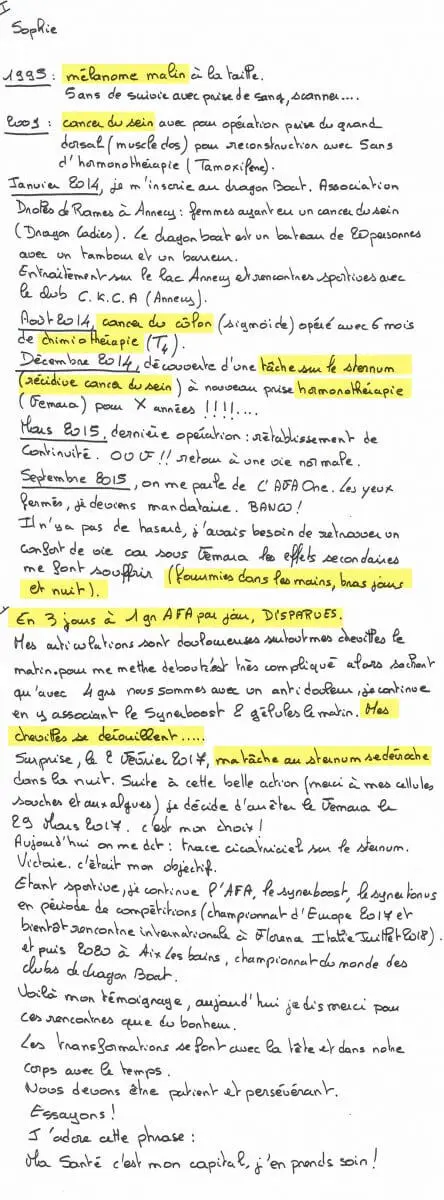 I
Sophie
1995 : mélanome malin à la taille.
5 ans de suivie avec prise de sang, scanner....
2009 : cancer du sein avec pour opération prise du grand
dorsal (muscle dos) pour reconstruction avec 5 ans
d'hormonothérapie (Tamoxifène).
Janvier 2014, je m'inscrie au dragon Boat. Association
Drôles de Rames à Annecy : femmes ayant eu un cancer du sein
(Dragon Ladies). Le dragon boat est un bateau de 20 personnes
avec un tambour et un barreur.
Entraîtement sur le lac Annecy et rencontres sportives avec
le club C.K.C.A (Annecy).
Août 2014, cancer du côlon (sigmoïde) opéré avec 6 mois
de chimiothérapie (T4).
Décembre 2014, découverte d'une tâche sur le sternum
(récidive cancer du sein) à nouveau prise hormonothérapie
(Femara) pour X années !!!!....
Mars 2015, dernière opération : rétablissement de
Continuité. OUF !! retour à une vie normale.
Septembre 2015, on me parle de L'AFA One. Les yeux
fermés, je deviens mandataire. BANCO !
Il n'y a pas de hasard, j'avais besoin de retrouver un
confort de vie car sous Femara les effets secondaires
me font souffrir (fourmies dans les mains, bras jours
et nuit).
En 3 jours à 1 gr AFA par jour, DISPARUES.
Mes articulations sont douloureuses surtout mes chevilles le
matin. pour me mettre debout c'est très compliqué alors sachant
qu'avec 4 grs nous sommes avec un antidouleur, je continue
en y associant le Synerboost 2 gélules le matin. Mes
chevilles se dérouillent.....
Surprise, le 2 Février 2017, ma tâche au sternum se décroche
dans la nuit. Suite à cette belle action (merci à mes cellules
souches et aux algues) je décide d'arrêter le Femara le
29 Mars 2017. c'est mon choix !
Aujourd'hui on me dit : trace cicatriciel sur le sternum.
Victoire. c'était mon objectif.
Etant sportive, je continue l'AFA, le synerboost, le synertonus
en période de compétitions (championnat d'Europe 2017 et
bientôt rencontre internationale à Florence Italie Juillet 2018).
et puis 2020 à Aix les bains, championnat du monde des
clubs de dragon Boat.
Voilà mon témoignage, aujourd'hui je dis merci pour
ces rencontres que du bonheur.
Les transformations se font avec la tête et dans notre
corps avec le temps.
Nous devons être patient et persévérant.
Essayons !
J'adore cette phrase :
Ma Santé c'est mon capital, j'en prends soin !